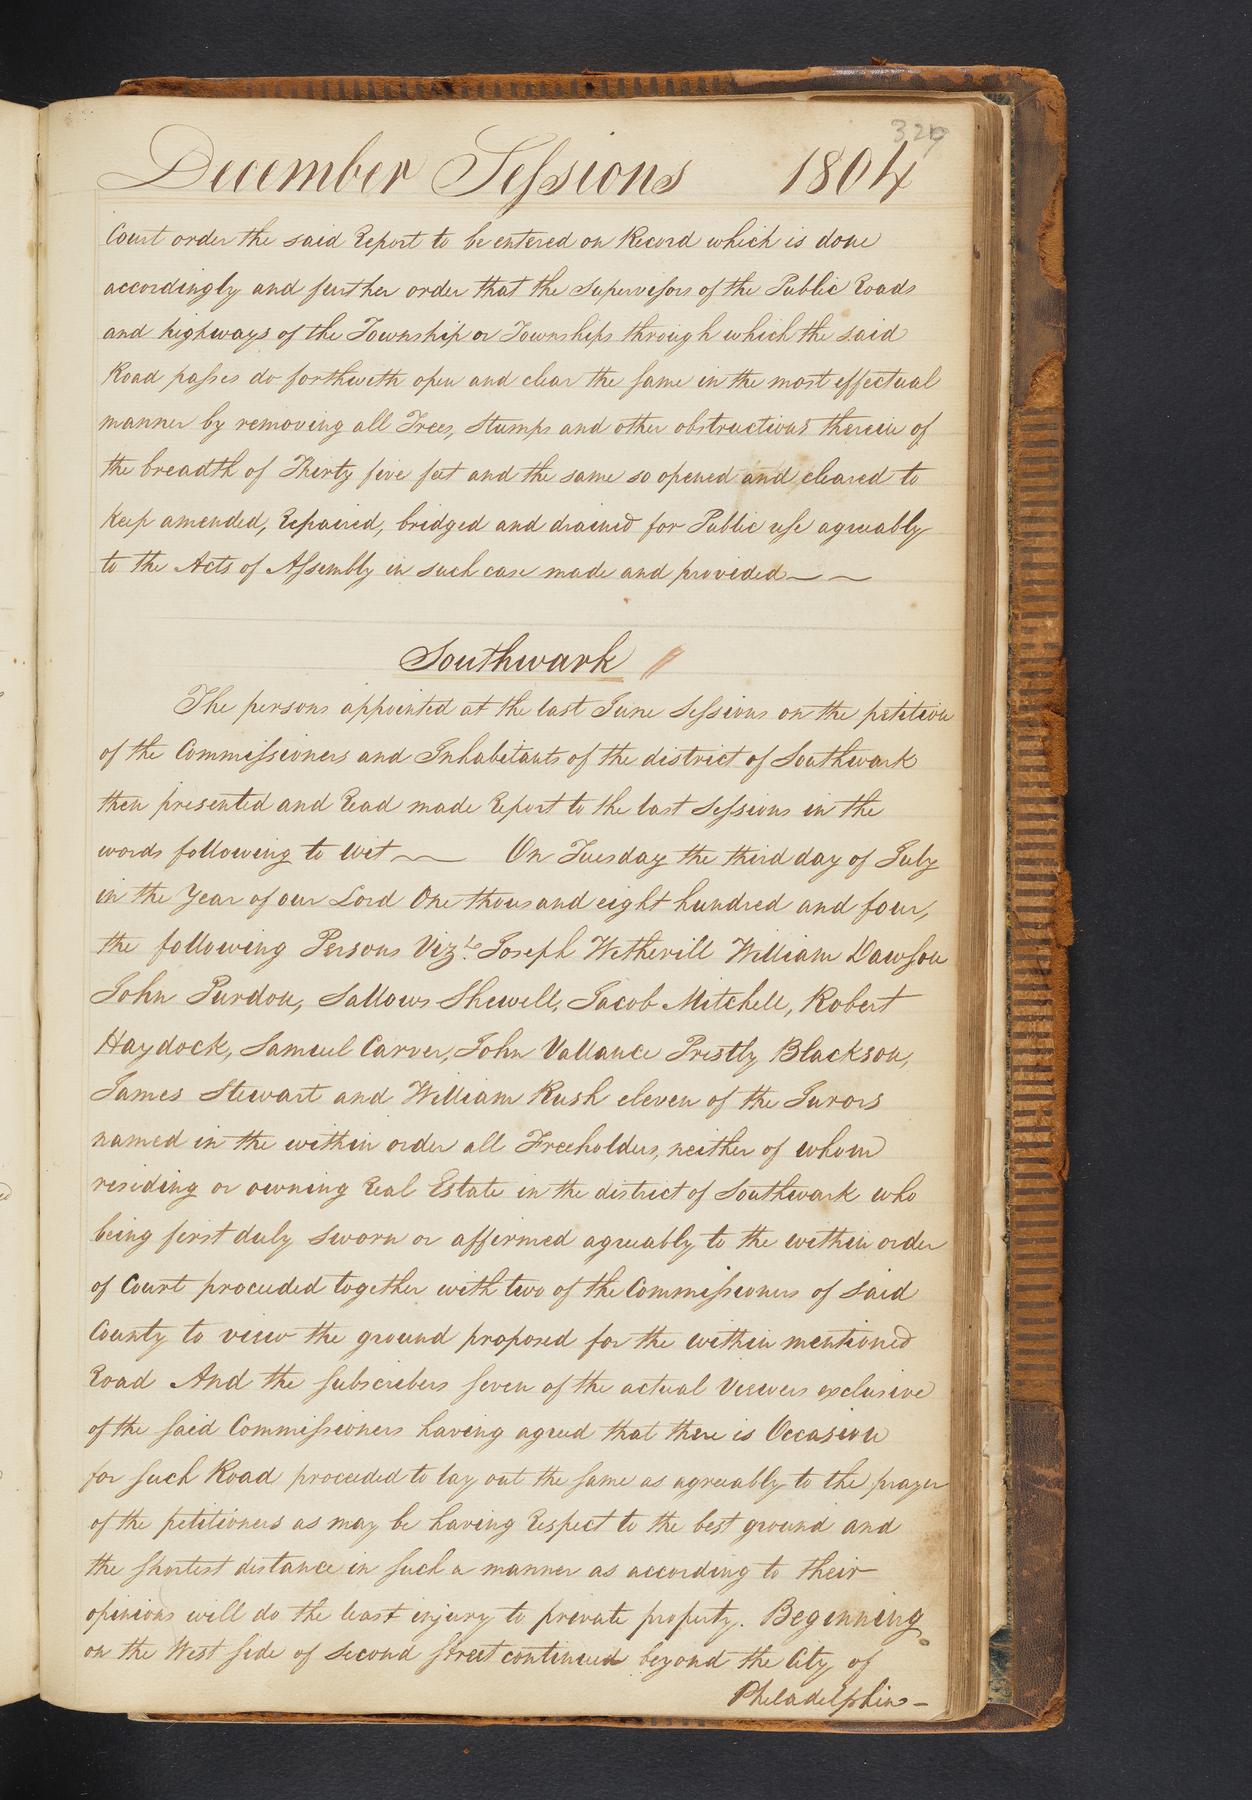 329
December Sessions 1804
Court order the said Report to be entered on Record which is done
accordingly and further order that the Supervisors of the Public Roads
and highways of the Township or Townships through which the said
Road passes do forthwith open and clear the same in the most effectual
manner by removing all Trees, Stumps and other obstructions therein of
the breadth of Thirty five feet and the same so opened and cleared to
keep amended, Repaired, bridged and drained for Public use agreeably
to the Acts of Assembly in such case made and provided
Southwark
The persons appointed at the last June Sessions on the petition
of the Commissioners and Inhabitants of the district of Southwark
then presented and Read made Report to the last Sessions in the
words following to wit On Tuesday the third day of July
in the Year of our Lord One thousand eight hundred and four,
the following Persons Vizt. Joseph Witherill William Dawson
John Purdon, Sallows Shewell, Jacob Mitchell, Robert
Haydock, Samuel Carver, John Vallance Prestly Blackson,
James Stewart and William Rush eleven of the Jurors
named in the within order all Freeholders, neither of whom
residing or owning Real Estate in the district of Southwark who
being first duly sworn or affirmed agreeably to the within order
of Court proceeded together with two of the Commissioners of said
County to view the ground proposed for the within mentioned
Road And the subscribers seven of the actual Viewers exclusive
of the said Commissioners having agreed that there is Occasion
for such Road proceeded to lay out the same as agreeably to the prayer
of the petitioners as may be having Respect to the best ground and
the shortest distance in such a manner as according to their
opinions will do the least injury to private property. Beginning
on the West side of Second street continued beyond the City of
Philadelphia